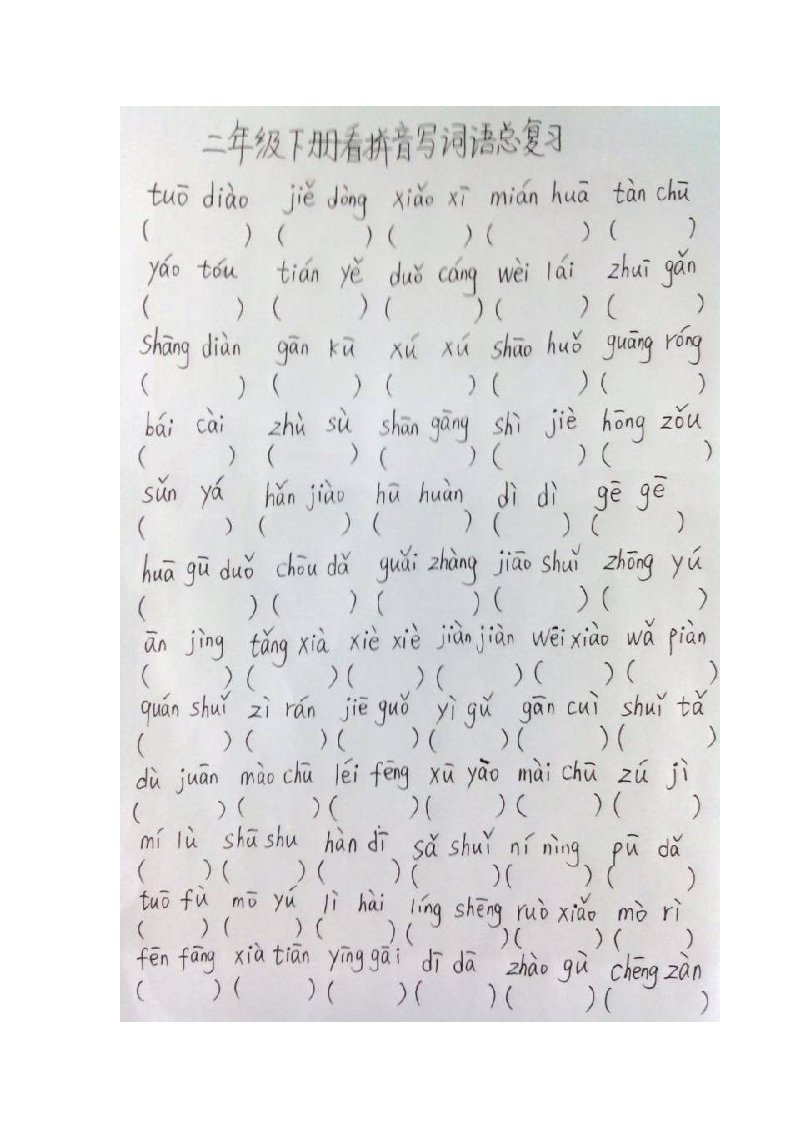 二年级下册看拼音写词语总复习
tuō diào jiě dòng xiǎo xī mián huā tàn chū
( ) ( ) ( ) ( ) ( )
yáo tóu tián yě duǒ cáng wèi lái zhuī gǎn
( ) ( ) ( ) ( ) ( )
shāng diàn gān kū xú xú shāo huǒ guāng róng
( ) ( ) ( ) ( ) ( )
bái cài zhù sù shān gāng shì jiè hōng zǒu
( ) ( ) ( ) ( ) ( )
sǔn yá hǎn jiào hū huàn dì dì gē gē
( ) ( ) ( ) ( ) ( )
huā gū duǒ chōu dǎ guǎi zhàng jiāo shuǐ zhōng yú
( ) ( ) ( ) ( ) ( )
ān jìng tǎng xià xiè xiè jiàn jiàn wēi xiào wǎ piàn
( ) ( ) ( ) ( ) ( ) ( )
quán shuǐ zì rán jiē guǒ yì gǔ gān cuì shuǐ tǎ
( ) ( ) ( ) ( ) ( ) ( )
dù juān mào chū léi fēng xū yào mài chū zú jì
( ) ( ) ( ) ( ) ( ) ( )
mí lù shū shu hàn dī sǎ shuǐ ní nìng pū dǎ
( ) ( ) ( ) ( ) ( ) ( )
tuō fù mō yú lì hài líng shēng ruò xiǎo mò rì
( ) ( ) ( ) ( ) ( ) ( )
fēn fāng xià tiān yīng gāi dī dā zhào gù chēng zàn
( ) ( ) ( ) ( ) ( ) ( )